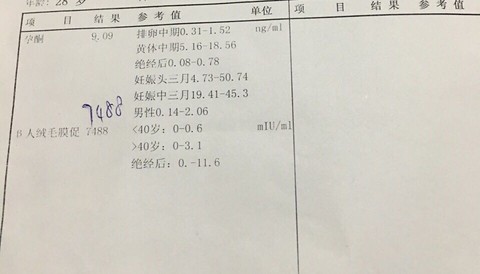 年龄: 28 岁
项 目 结 果 参 考 值 单 位 项 目 结 果 参 考 值
孕酮 9.09 排卵中期0.31-1.52 ng/ml
黄体中期5.16-18.56
绝经后0.08-0.78
妊娠头三月4.73-50.74
妊娠中三月19.41-45.3
7488 男性0.14-2.06
B人绒毛膜促 7488 <40岁: 0-0.6 mIU/ml
>40岁: 0-3.1
绝经后: 0.-11.6